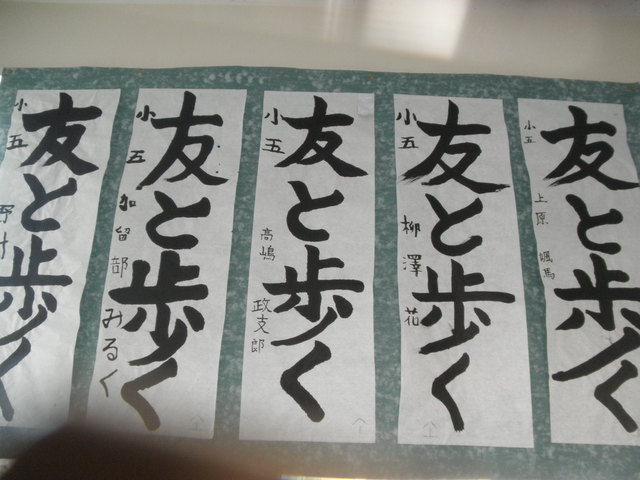 友と歩く
小五
上原 颯馬
友と歩く
小五
柳澤 花
友と歩く
小五
高嶋 政支郎
友と歩く
小五
加留部 みるく
友と歩く
小五